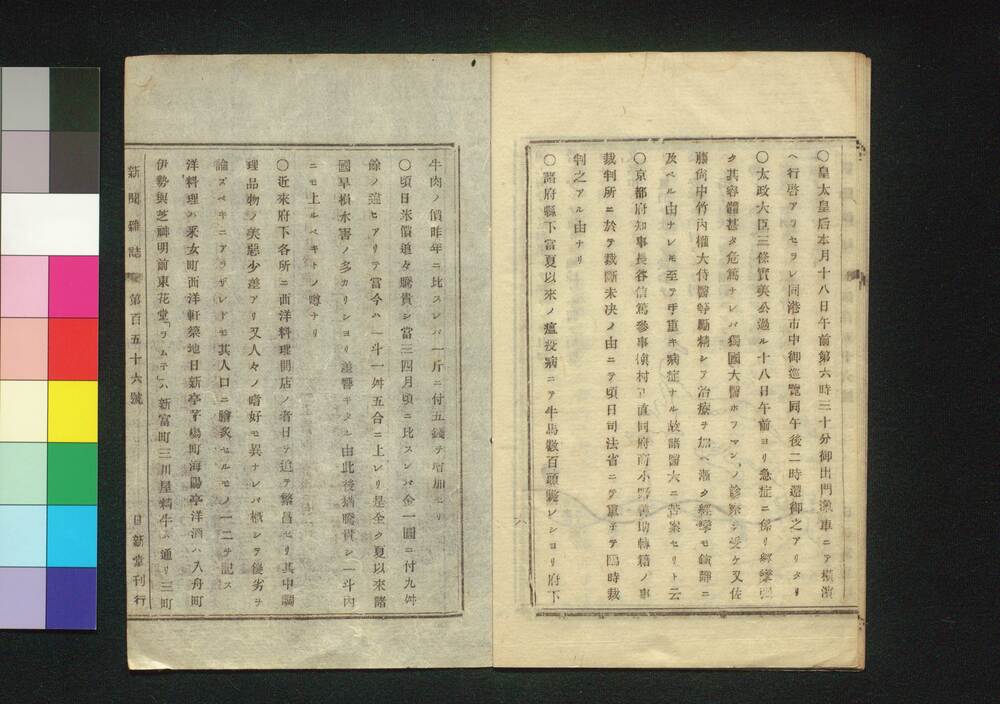 〇皇太皇后本月十八日午前第六時三十分御出門滊車ニテ横濱
ヘ行啓アラセラレ同港市中御巡覽同午後二時還御之アリタリ
〇太政大臣三條實美公過ル十八日午前ヨリ急症ニ係リ
ク其容體甚タ危篤ナレバ獨國大醫ホフマンノ診察ヲ受ケ又佐
藤尚中竹内權大侍醫等勵精シテ治療ヲ加ヘ漸ク
及ベル由ナレ𪜈至テ手重キ病症ナル故諸醫大ニ苦案セリト云
〇京都府知事長谷信篤參事槇村正直同府商小野善助轉籍ノ事
裁判所ニ於テ裁斷未决ノ由ニテ頃日司法省ニテ更ニ臨時裁
判之アル由ナリ
〇諸府縣下當夏以來ノ瘟疫病ニテ牛馬數百頭斃レシヨリ府下
牛肉ノ價昨年ニ比スレバ一斤ニ付五錢ヲ増加セリ
〇頃日米價追々騰貴シ當三四月頃ニ比スレバ金一圓ニ付九舛
餘ノ違ヒアリテ當今ハ一斗一舛五合ニ上レリ是全ク夏以來諸
國旱損水害ノ多カリシヨリ差響キタル由此後猶騰貴シ一斗内
ニモ上ルベキトノ噂ナリ
〇近來府下各所ニ西洋料理開店ノ者日ヲ追テ繁昌セリ其中調
理品物ノ美惡少差アリ又人々ノ嗜好モ異ナレバ概シテ優劣ヲ
論ズベキニアラザレドモ其人口ニ膾炙セルモノ一二ヲ記ス
洋料理ハ采女町西洋軒築地日新亭茅場町海陽亭洋酒ハ入舟町
伊勢與芝神明前東花堂「ラムチ」ハ新富町三川屋精牛ハ通リ三町
新聞雜誌 第百五十六號 日新堂刊行